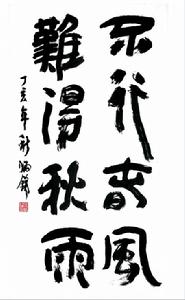 不行春風
難得秋雨
丁亥年